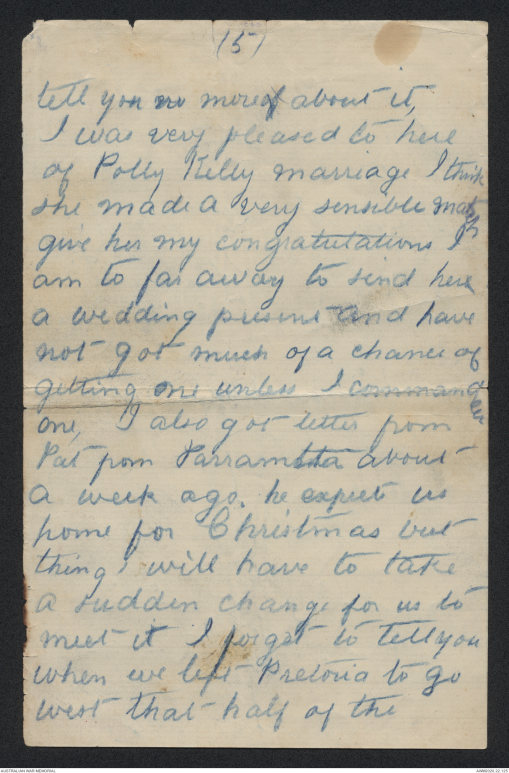 (5)
tell you no more of about it,
I was very pleased to here
of Polly Kelly marriage I think
she made a very sensible match
give her my congratulations I
am to far away to send here
a wedding present and have
not got much of a chance of
getting one unless I commandeer
one, I also got letter from
Pat from Parramatta about
a week ago. he expect us
home for Christmas but
thing will have to take
a sudden change for us to
meet it I forget to tell you
when we left Pretoria to go
west that half of the
AUSTRALIAN WAR MEMORIAL